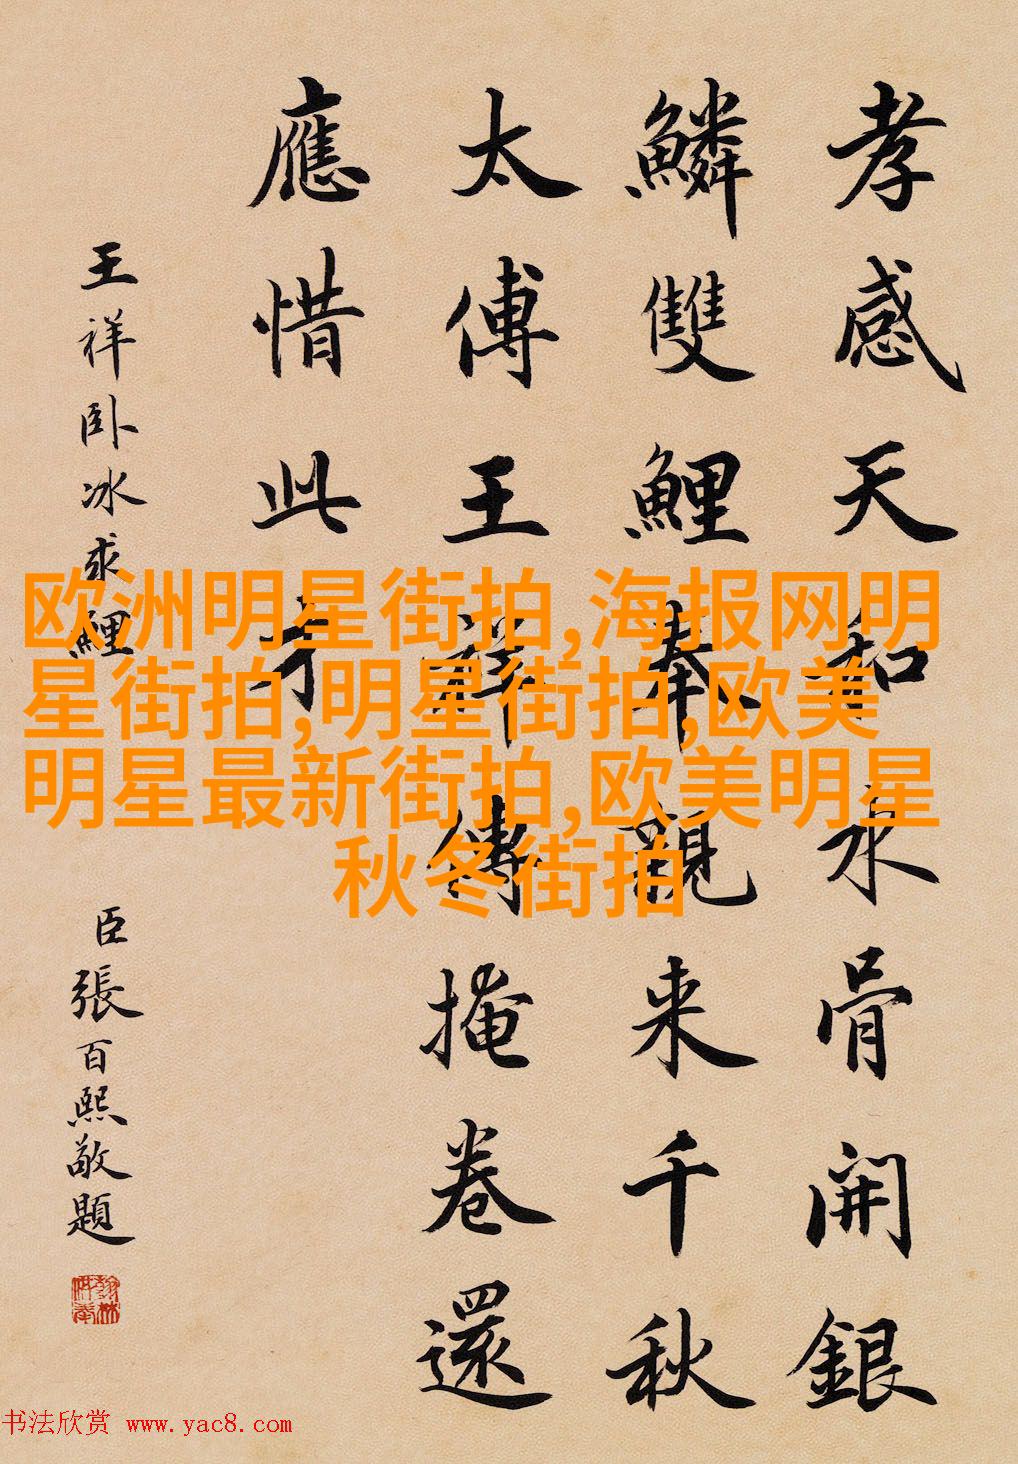 孝感天和氷骨開銀
鱗雙鯉奉親来千秋
太傅王祥傳掩卷還
應惜此才
王祥卧冰求鯉
臣張百熙敬題
欧洲明星街拍,海报网明
星街拍,明星街拍,欧美
明星最新街拍,欧美明星
秋冬街拍
书法欣赏 www.yac8.com